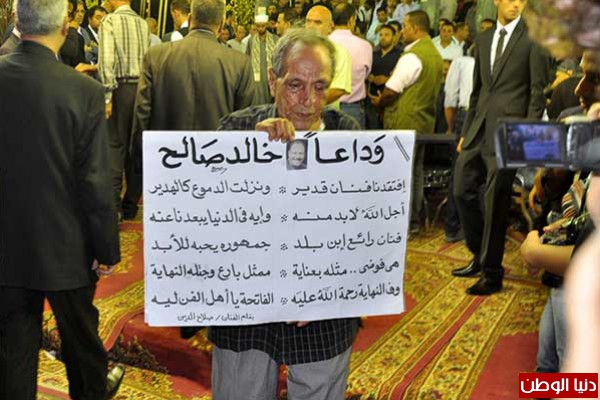 وداعاً خالد صالح
إفتقدنا فنان قدير * ونزلت الدموع كالهدير
أجل الله لابد منه * وإيه فى الدنيا يبعدنا عنه
فنان رائع إبن بلد * جمهوره يحبه للأبد
هى فوضى .. مثله بعناية * ممثل بارع وجتله النهاية
وفى النهاية رحمة الله عليه * الفاتحة يا أهل الفن ليه
بقلم الفنان / صلاح الدين
دنيا الوطن